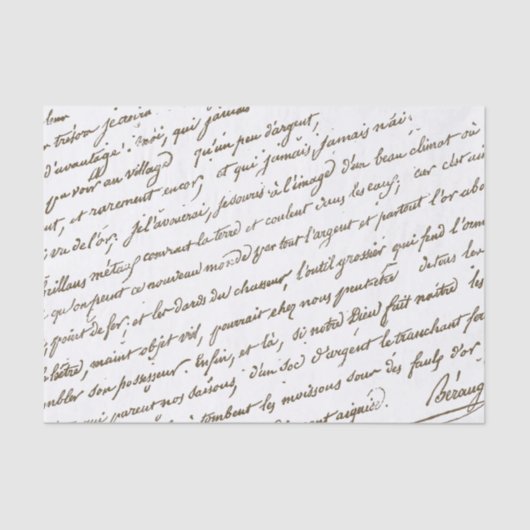 leur
trésor je croira
d'avantage! moi, qui jamais
pu voir au village qu'un peu d'argent,
et rarement encor, et qui jamais, jamais n'ai
vu de l'or. Je l'avouerai, je souris à l'image d'un beau climat où
brillans métaux couvrent la terre et coulent sous les eaux; car c'est ain
qu'on peint ce nouveau monde, par tout l'argent et partout l'or abo
point de fer: et les dards du chasseur, l'outil grossier qui fend l'orme
maint objet vil, pourrait chez nous peut-être de tous les
embler son possesseur. Enfin, et là, si notre Dieu fait naître les
qui parent nos saisons, d'un soc d'argent le tranchant fa
tombent les moissons sous des faulx d'or.
aiguisé.
Béranger